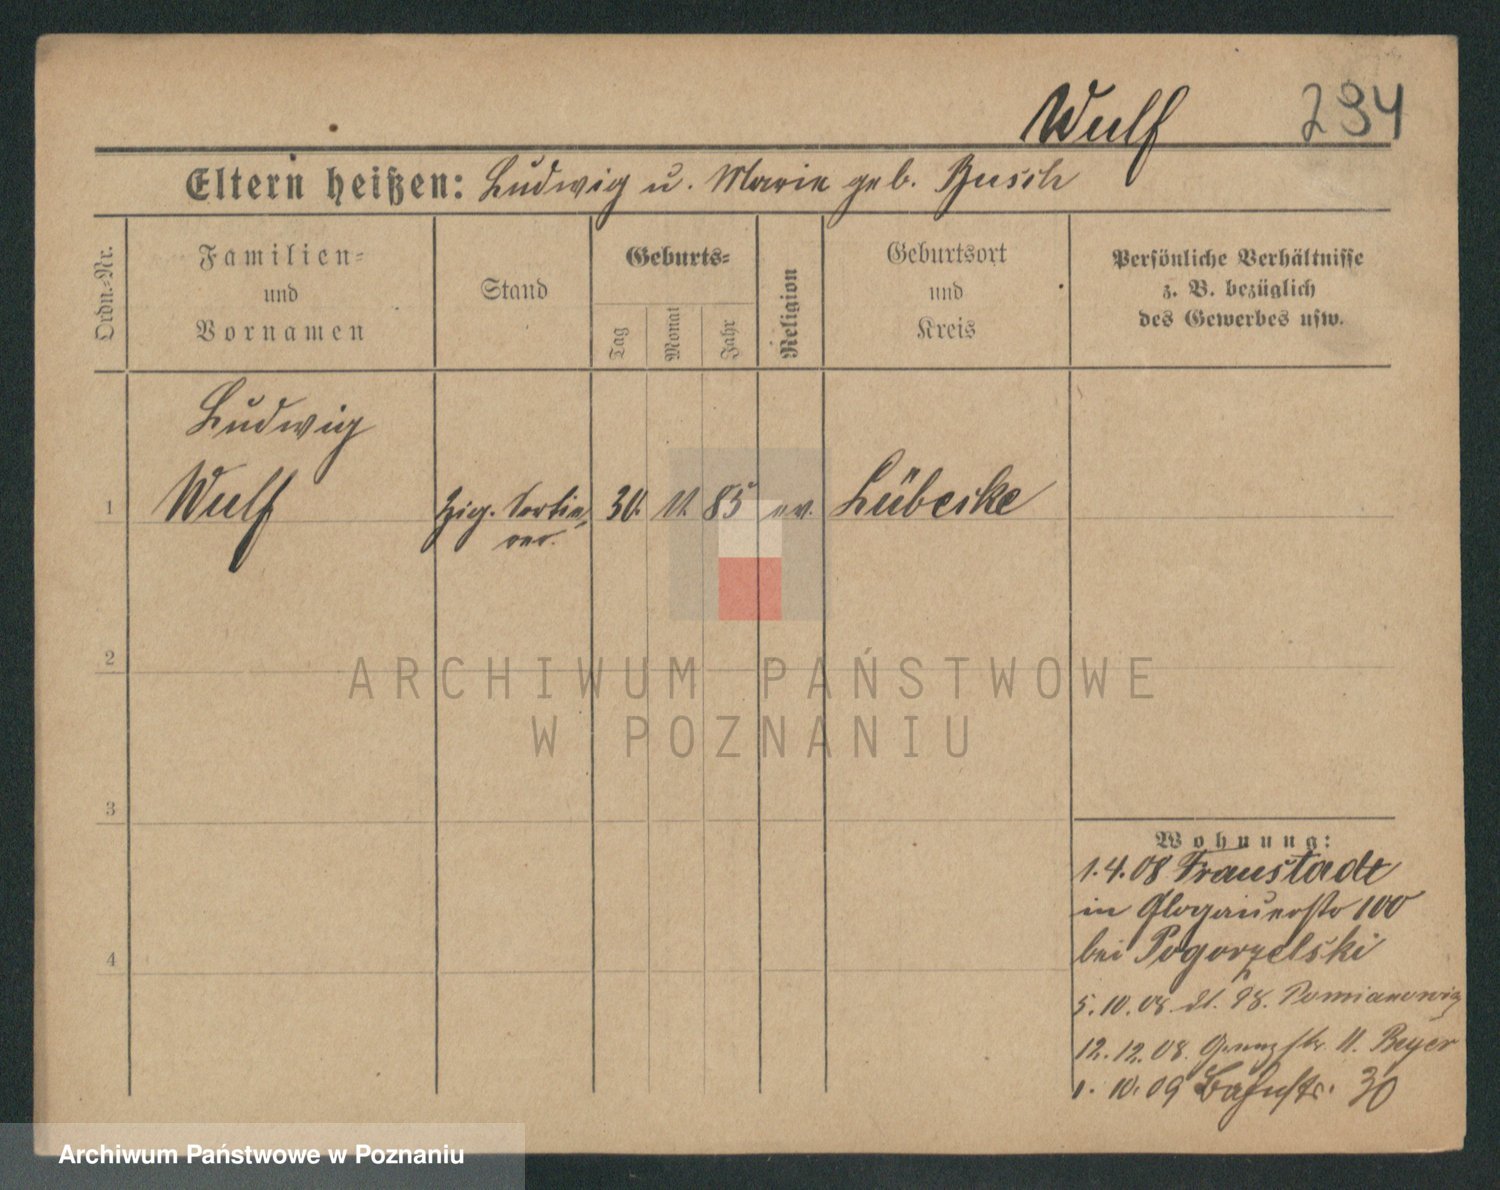 Wulf 294
Eltern heißen: Ludwig u. Marie geb. Busch
Ordn.-Nr.
Familien-
und
Vornamen
Stand
Geburts-
Tag
Monat
Jahr
Religion
Geburtsort
und
Kreis
Persönliche Verhältnisse
z. B. bezüglich
des Gewerbes usw.
Ludwig
1 Wulf Zig. Sortie, 30. 11. 85 ev. Lübecke
rer.
2
3
4
Wohnung:
1.4.08 Fraustadt
in Glogauerstr 100
bei Pogorzelski
5.10.08. 98. Pomianowig
12.12.08. 11. Beyer
1.10.09 Bahnstr. 30
ARCHIWUM PAŃSTWOWE
W POZNANIU
Archiwum Państwowe w Poznaniu